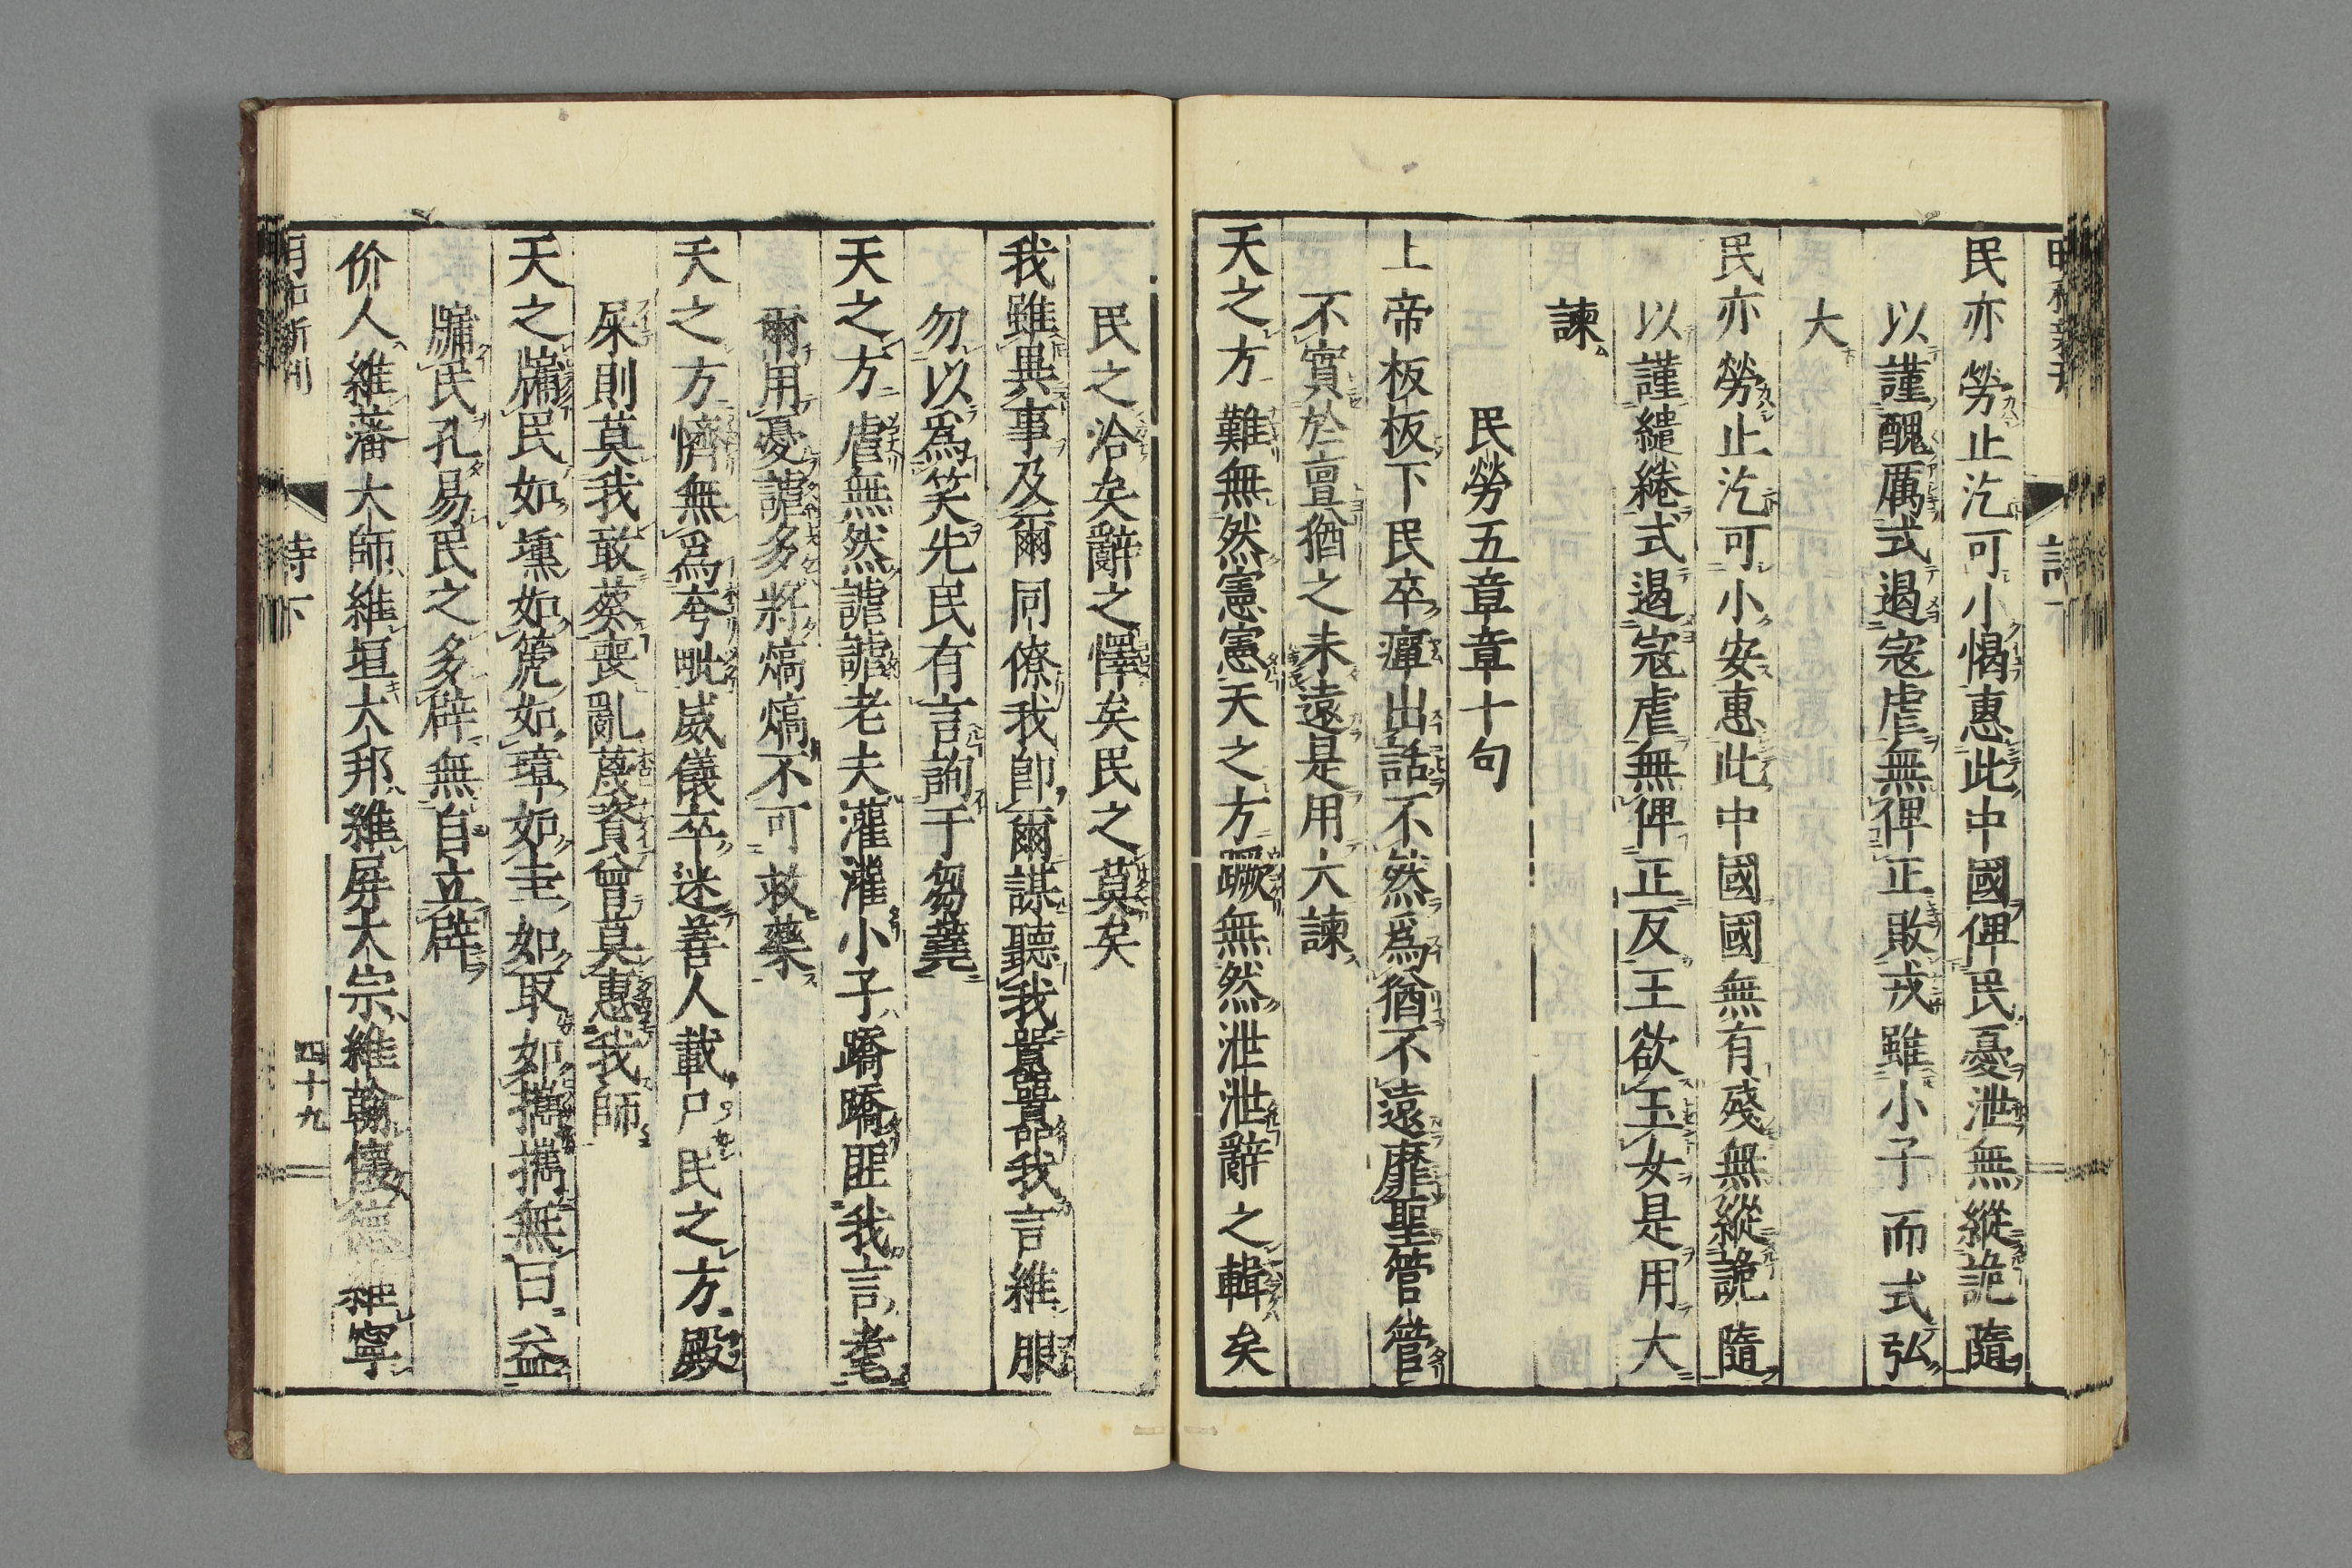 民亦勞止汔可小愒惠此中國俾民憂泄無縱詭隨
以謹醜厲式遏寇虐無俾正敗戎雖小子而式弘
大
民亦勞止汔可小安惠此中國國無有殘無縱詭隨
以謹繾綣式遏寇虐無俾正反王欲玉女是用大
諫
民勞五章章十句
上帝板板下民卒癉出話不然爲猶不遠靡聖管管
不實於亶猶之未遠是用大諫
天之方難無然憲憲天之方蹶無然泄泄辭之輯矣
民之洽矣辭之懌矣民之莫矣
我雖異事及爾同僚我卽爾謀聽我囂囂我言維服
勿以爲笑先民有言詢于芻蕘
天之方虐無然謔謔老夫灌灌小子蹻蹻匪我言耄
爾用憂謔多將熇熇不可救藥
天之方懠無爲夸毗威儀卒迷善人載尸民之方殿
屎則莫我敢葵喪亂蔑資曾莫惠我師
天之牖民如壎如篪如璋如圭如取如攜攜無曰益
牖民孔易民之多辟無自立辟
价人維藩大師維垣大邦維屏大宗維翰懷德維寧
詩下
四十九